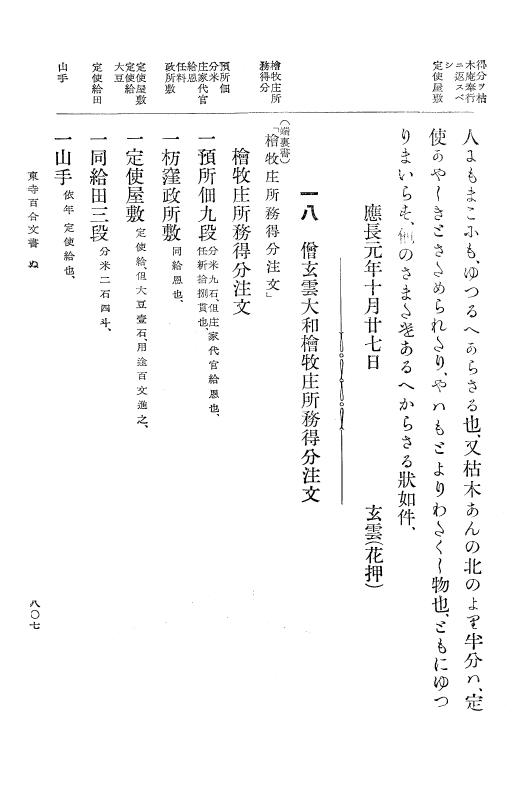 得分ヲ枯
木庵奉行
ニ返スベ
シ
定使屋敷
人にもまこにも、ゆつるへからさる也、又枯木あんの北のより半分ハ、定
使のやしきとさためられたり、やハもとよりわたくし物也、ともにゆつ
りまいらせ、のさまたけあるへからさる狀如件、
應長元年十月廿七日
玄雲(花押)
一八 僧玄雲大和檜牧庄所務得分注文
檜牧庄所
務得分
(端裏書)
「檜牧庄所務得分注文」
檜牧庄所務得分注文
預所佃
分米
庄家代官
給恩
任料
政所敷
一預所佃九段
分米九石但庄家代官給恩也、
任新拾捌貫也、
一枌窪政所敷 同給恩也、
定使屋敷
定使給
大豆
一定使屋敷 定使給、但大豆壹石、用途百文進之、
定使給田
一同給田三段 分米二石四斗、
山手
一山手 依年 定使給也、
東寺百合文書 ぬ
八〇七